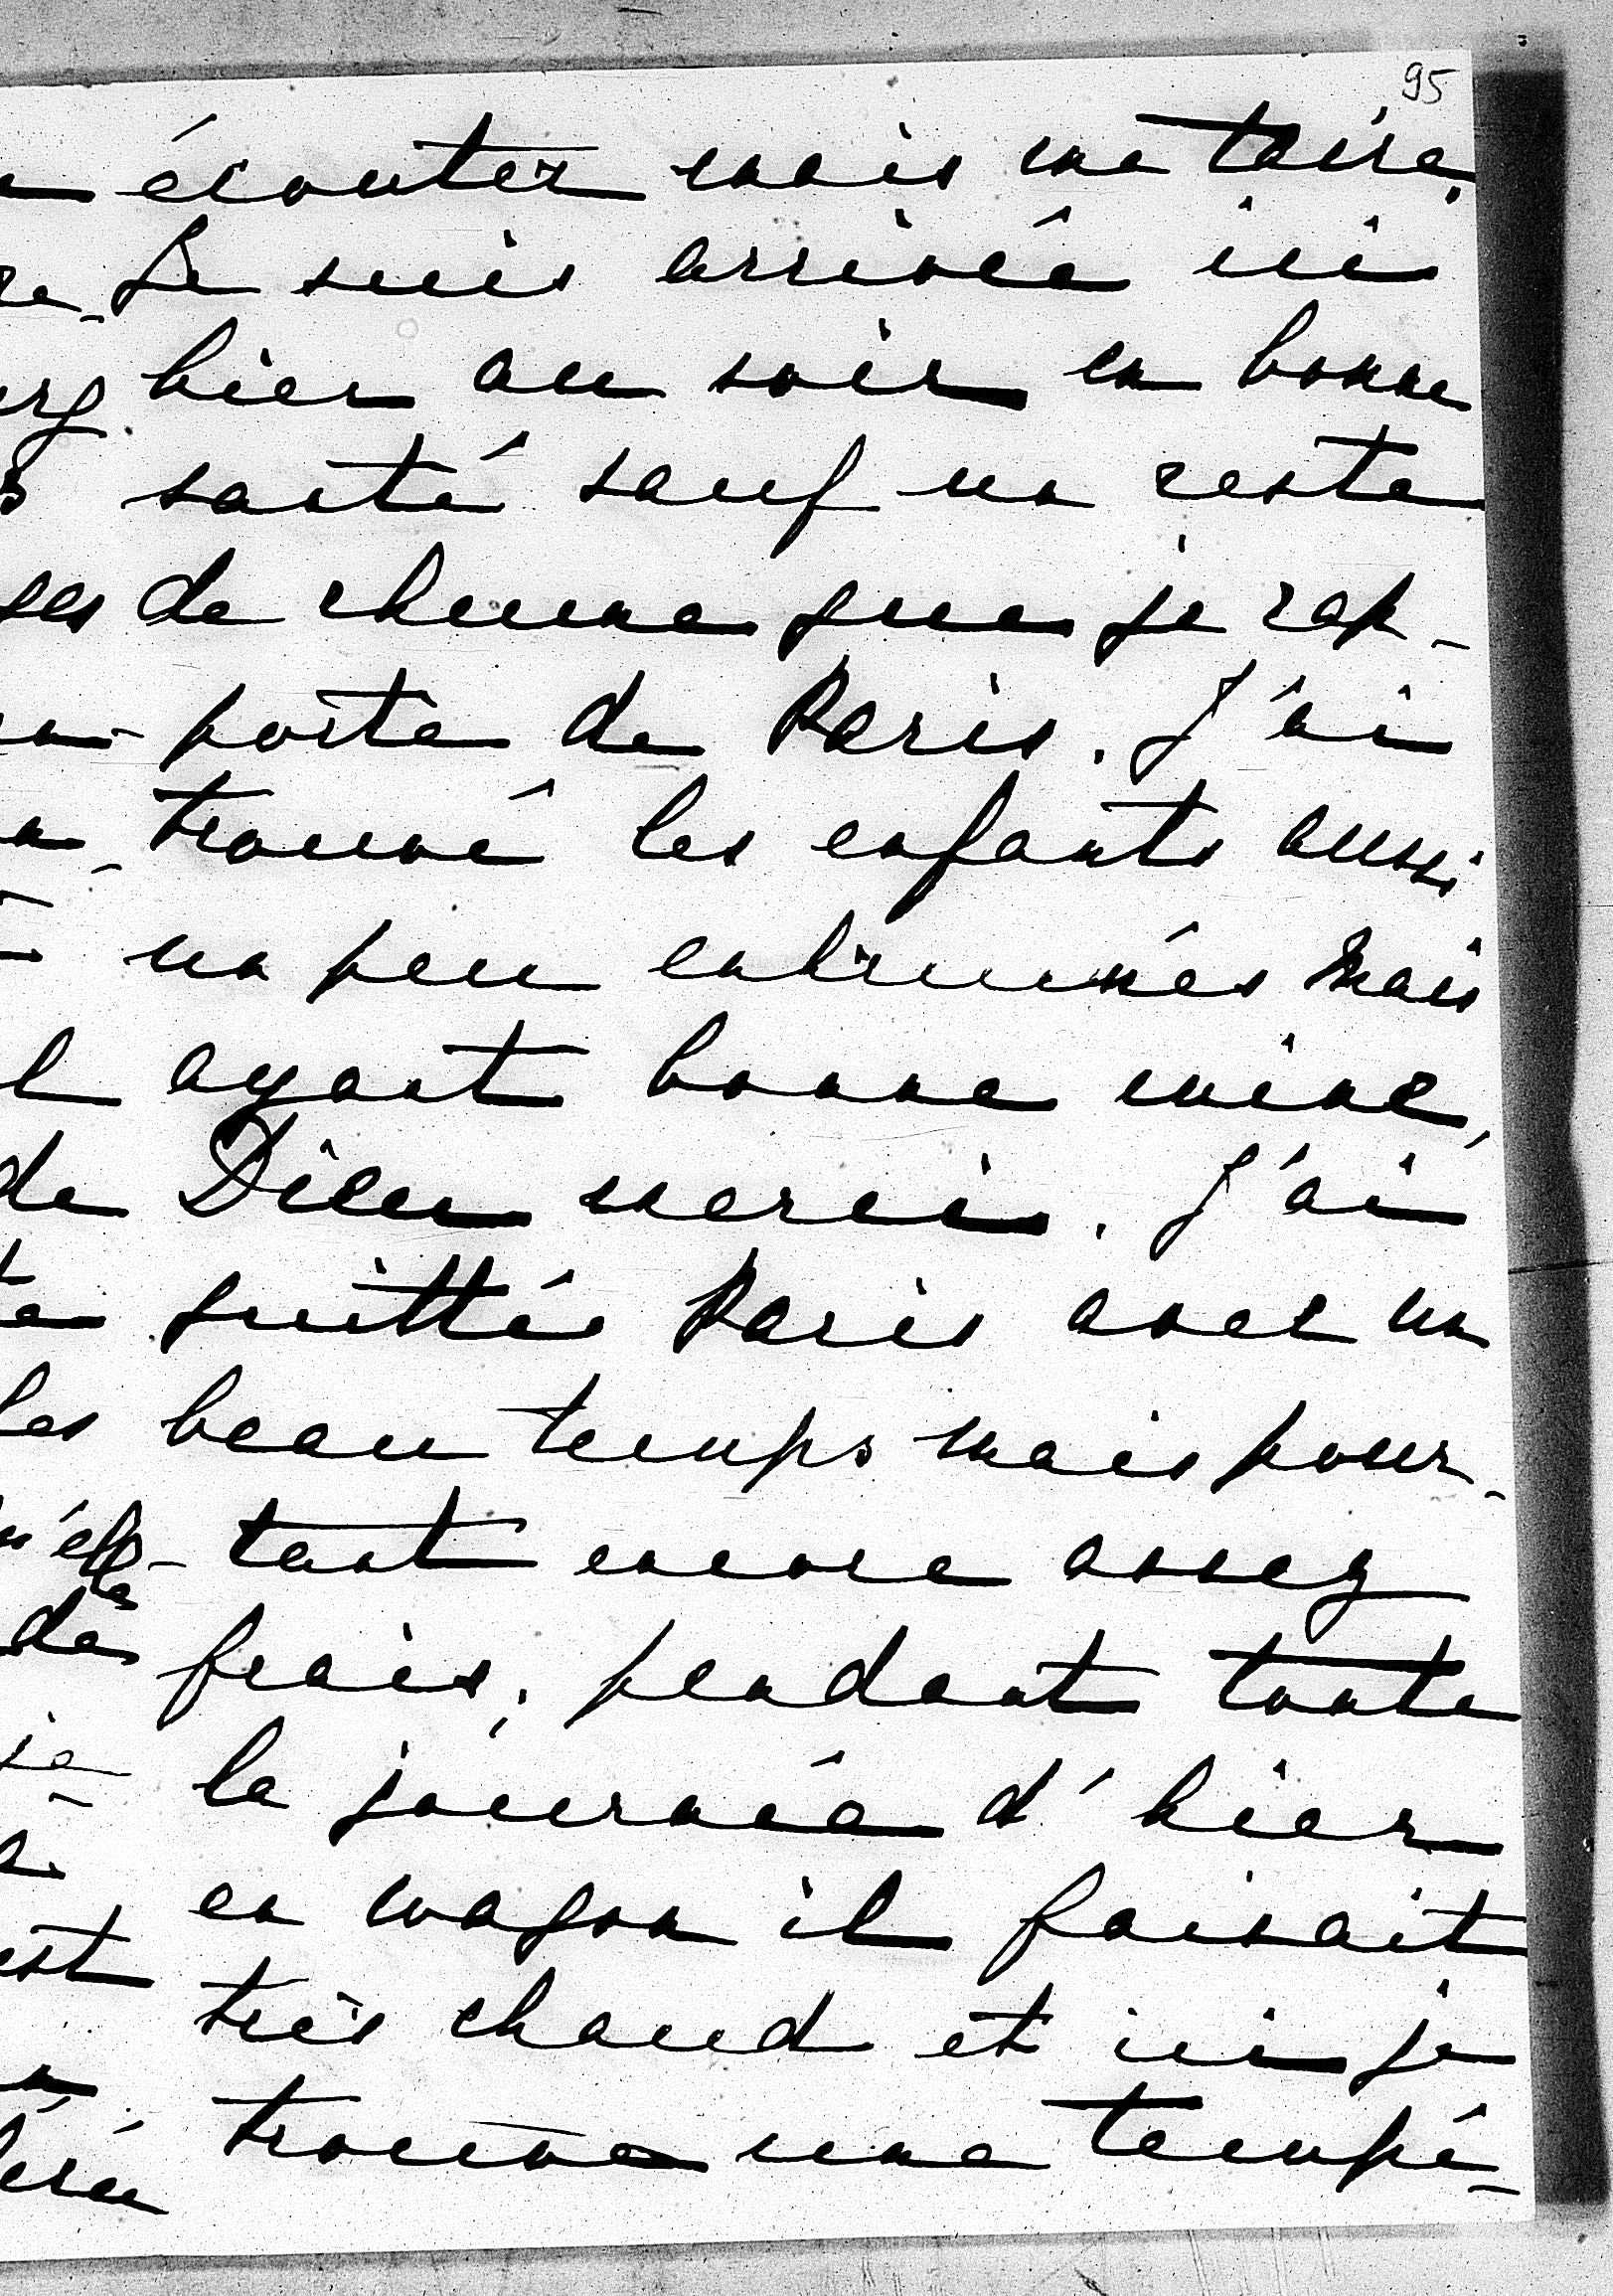 95
écouter mais me taire.
Je suis arrivée ici
hier au soir en bonne
santé sauf un reste
de rhume que je rap-
porte de Paris. J'ai
trouvé les enfants aussi
un peu enrhumés mais
ayant bonne mine,
Dieu merci. J'ai
quitté Paris avec un
beau temps mais pour-
tant encore assez
frais; pendant toute
la journée d'hier
en wagon il faisait
très chaud et ici je
trouve une tempé-